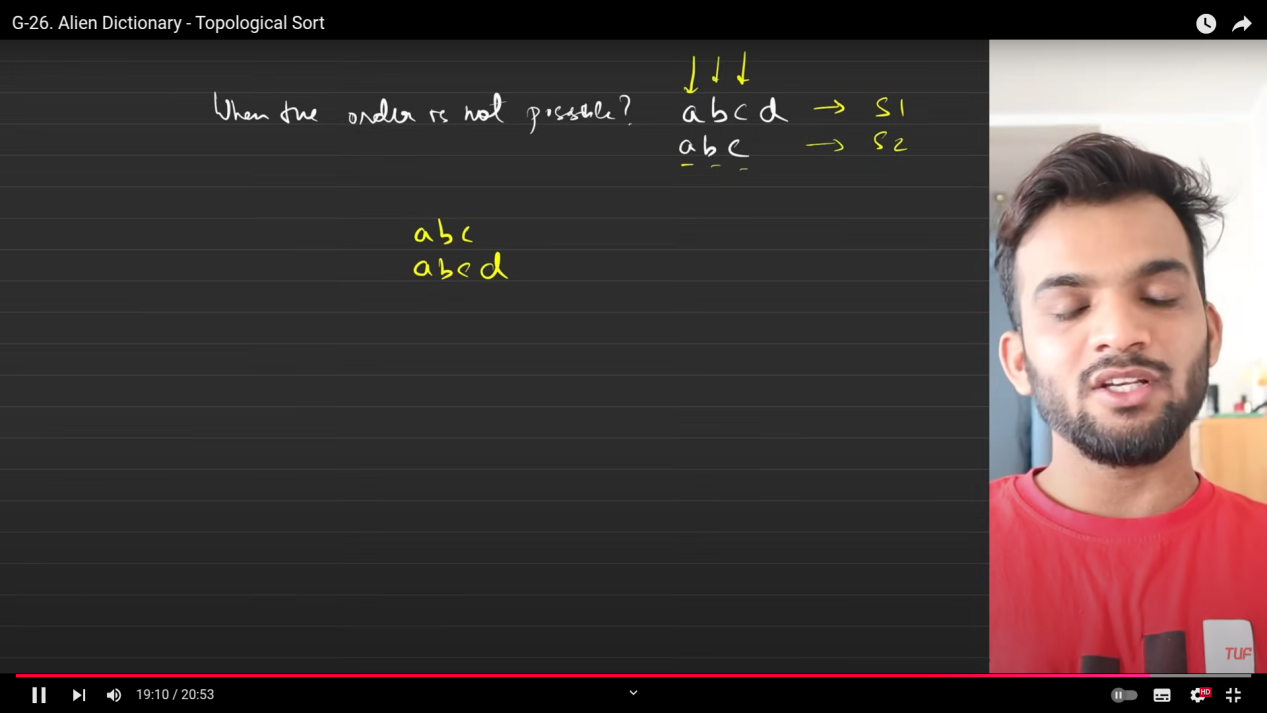 G-26. Alien Dictionary - Topological Sort
When the order is not possible?
abcd → S1
abc → S2
abc
abcd
TUF
19:10 / 20:53
HD